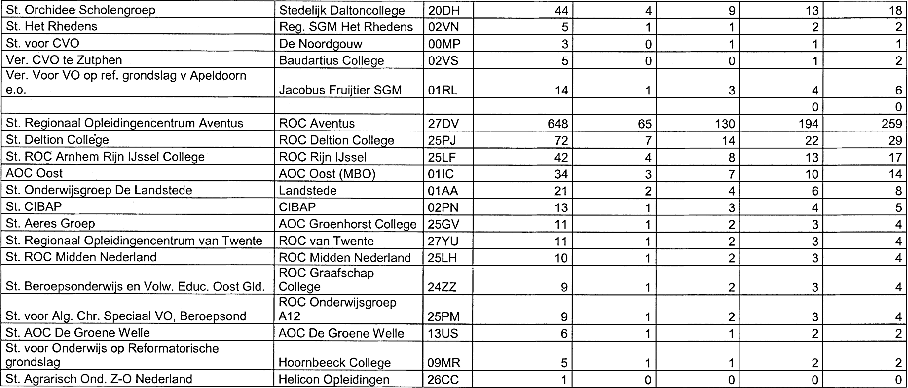 St. Orchidee Scholengroep Stedelijk Daltoncollege 20DH 44 4 9 13 18
St. Het Rhedens Reg. SGM Het Rhedens 02VN 5 1 1 2 2
St. voor CVO De Noordgouw 00MP 3 0 1 1 1
Ver. CVO te Zutphen Baudartius College 02VS 5 0 0 1 2
Ver. Voor VO op ref. grondslag v Apeldoorn
e.o. Jacobus Fruijtier SGM 01RL 14 1 3 4 6
0 0
St. Regionaal Opleidingencentrum Aventus ROC Aventus 27DV 648 65 130 194 259
St. Deltion College ROC Deltion College 25PJ 72 7 14 22 29
St. ROC Arnhem Rijn IJssel College ROC Rijn IJssel 25LF 42 4 8 13 17
AOC Oost AOC Oost (MBO) 01IC 34 3 7 10 14
St. Onderwijsgroep De Landstede Landstede 01AA 21 2 4 6 8
St. CIBAP CIBAP 02PN 13 1 3 4 5
St. Aeres Groep AOC Groenhorst College 25GV 11 1 2 3 4
St. Regionaal Opleidingencentrum van Twente ROC van Twente 27YU 11 1 2 3 4
St. ROC Midden Nederland ROC Midden Nederland 25LH 10 1 2 3 4
ROC Graafschap
St. Beroepsonderwijs en Volw. Educ. Oost Gld. College 24ZZ 9 1 2 3 4
ROC Onderwijsgroep
St. voor Alg. Chr. Speciaal VO, Beroepsond A12 25PM 9 1 2 3 4
St. AOC De Groene Welle AOC De Groene Welle 13US 6 1 1 2 2
St. voor Onderwijs op Reformatorische
grondslag Hoornbeeck College 09MR 5 1 1 2 2
St. Agrarisch Ond. Z-O Nederland Helicon Opleidingen 26CC 1 0 0 0 0